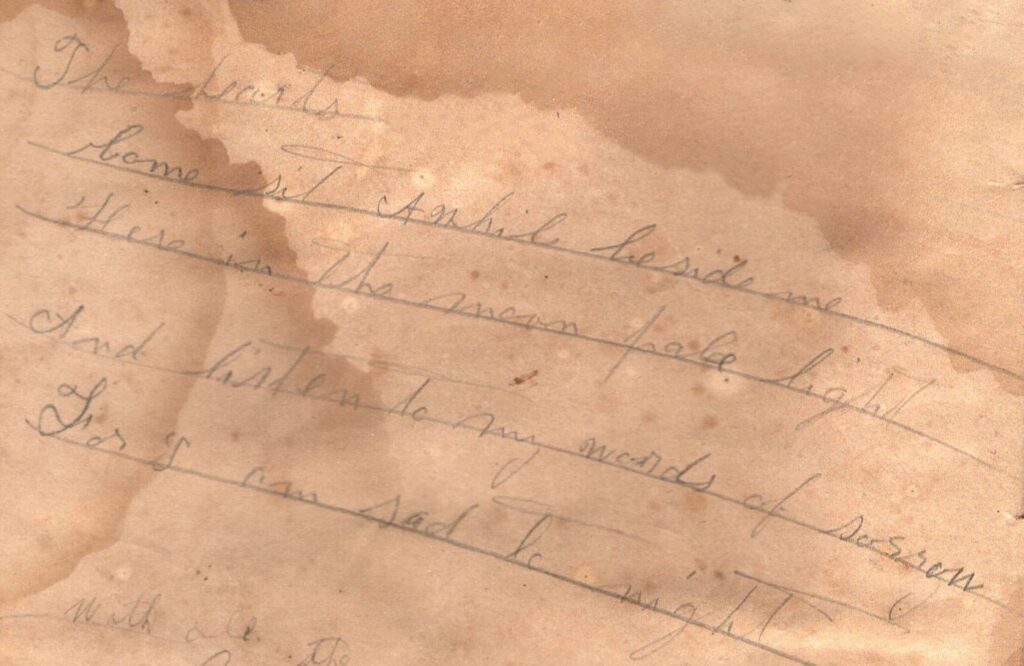 The hearts
Come sit Awhile beside me
Here in the moon pale light
And listen to my words of sorrow
For I am sad to night
With all the